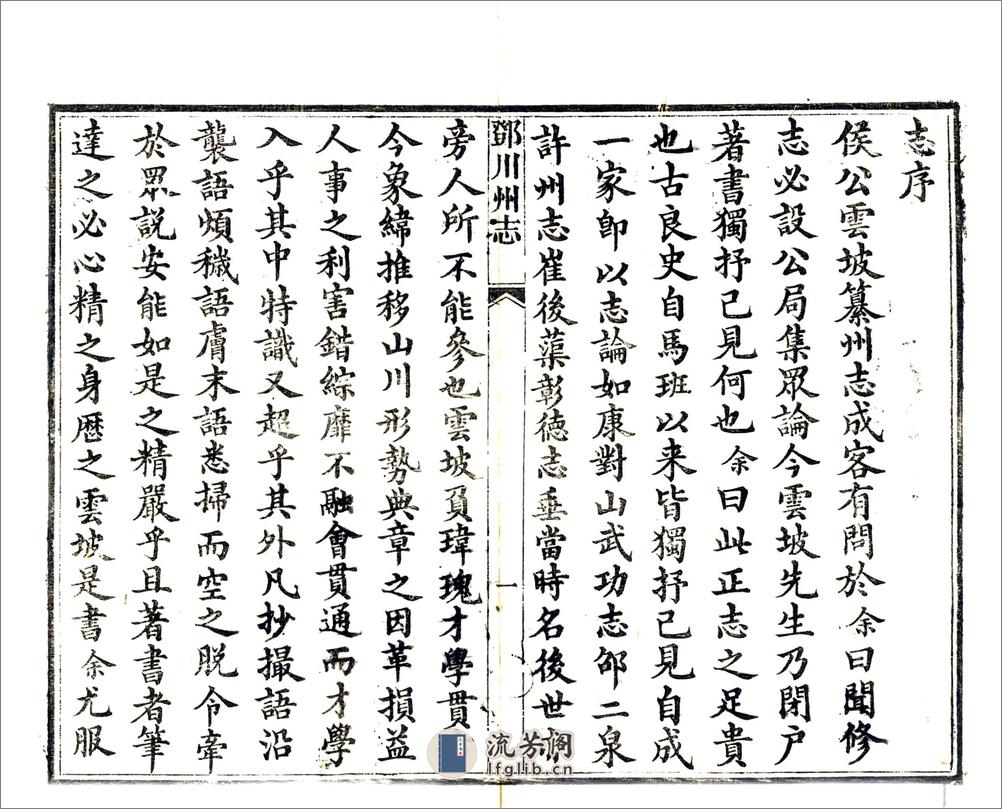 志序
侯公雲坡纂州志成客有問於余曰聞修
志必設公局集眾論今雲坡先生乃閉戶
著書獨抒己見何也余曰此正志之足貴
也古良史自馬班以来皆獨抒己見自成
一家即以志論如康對山武功志邰二泉
許州志崔後蕖彰德志垂當時名後世
鄧川州志
一
旁人所不能參也雲坡負瑋瑰才學貫
今象緯推移山川形勢典章之因革損益
人事之利害錯綜靡不融會貫通而才學
入乎其中特識又超乎其外凡抄撮語沿
襲語煩穢語膚末語悉掃而空之脫令牽
於眾説安能如是之精嚴乎且著書者筆
達之必心精之身歷之雲坡是書余尤服
流芳阁
lfglib.cn